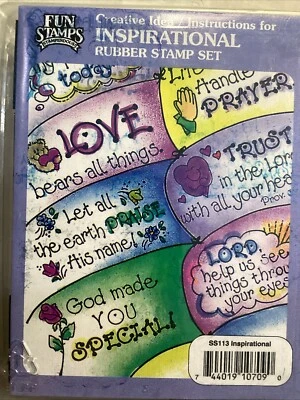 FUN
STAMPS
Creative Idea / Instructions for
INSPIRATIONAL
RUBBER STAMP SET
today
Handle
PRAYER
LOVE
bears all things.
TRUST
in the Lord
with all your heart
Prov.
Let all
the earth PRAISE
His name!
LORD
help us see
things through
your eyes
God made
YOU
SPECIAL!
SS113 Inspirational
7 44019 10709 0